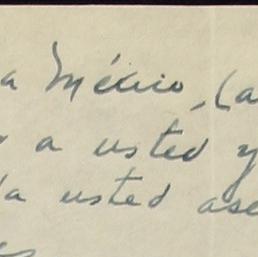 a México, (a
a usted y
da usted ase